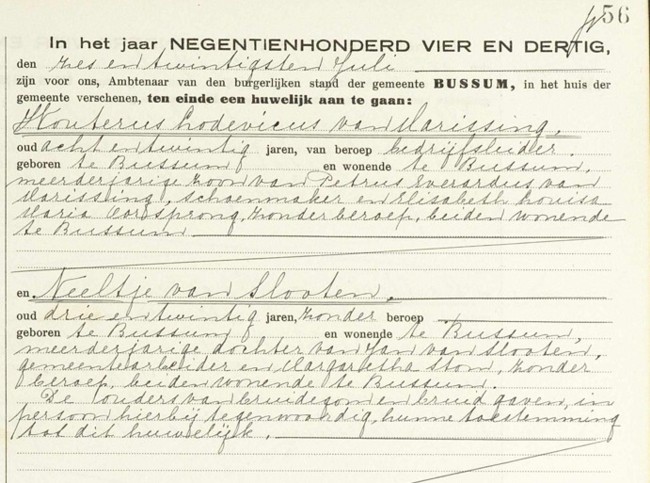 56
In het jaar NEGENTIENHONDERD VIER EN DERTIG,
den zes en twintigsten Juli
zijn voor ons, Ambtenaar van den burgerlijken stand der gemeente BUSSUM, in het huis der
gemeente verschenen, ten einde een huwelijk aan te gaan:
Wouterus Lodevicus van Marissing,
oud acht en twintig jaren, van beroep bedrijfsleider,
geboren te Bussum en wonende te Bussum,
meerderjarige zoon van Petrus Everardus van
Marissing, schoenmaker en Elisabeth Louisa
Maria Oorsprong, zonder beroep, beiden wonende
te Bussum
en Neeltje van Slooten,
oud drie en twintig jaren, zonder beroep
geboren te Bussum en wonende te Bussum,
meerderjarige dochter van Jan van Slooten,
gemeentearbeider en Margaretha Stom, zonder
beroep, beiden wonende te Bussum.
De ouders van bruidegom en bruid gaven, in
persoon hierbij tegenwoordig, hunne toestemming
tot dit huwelijk.